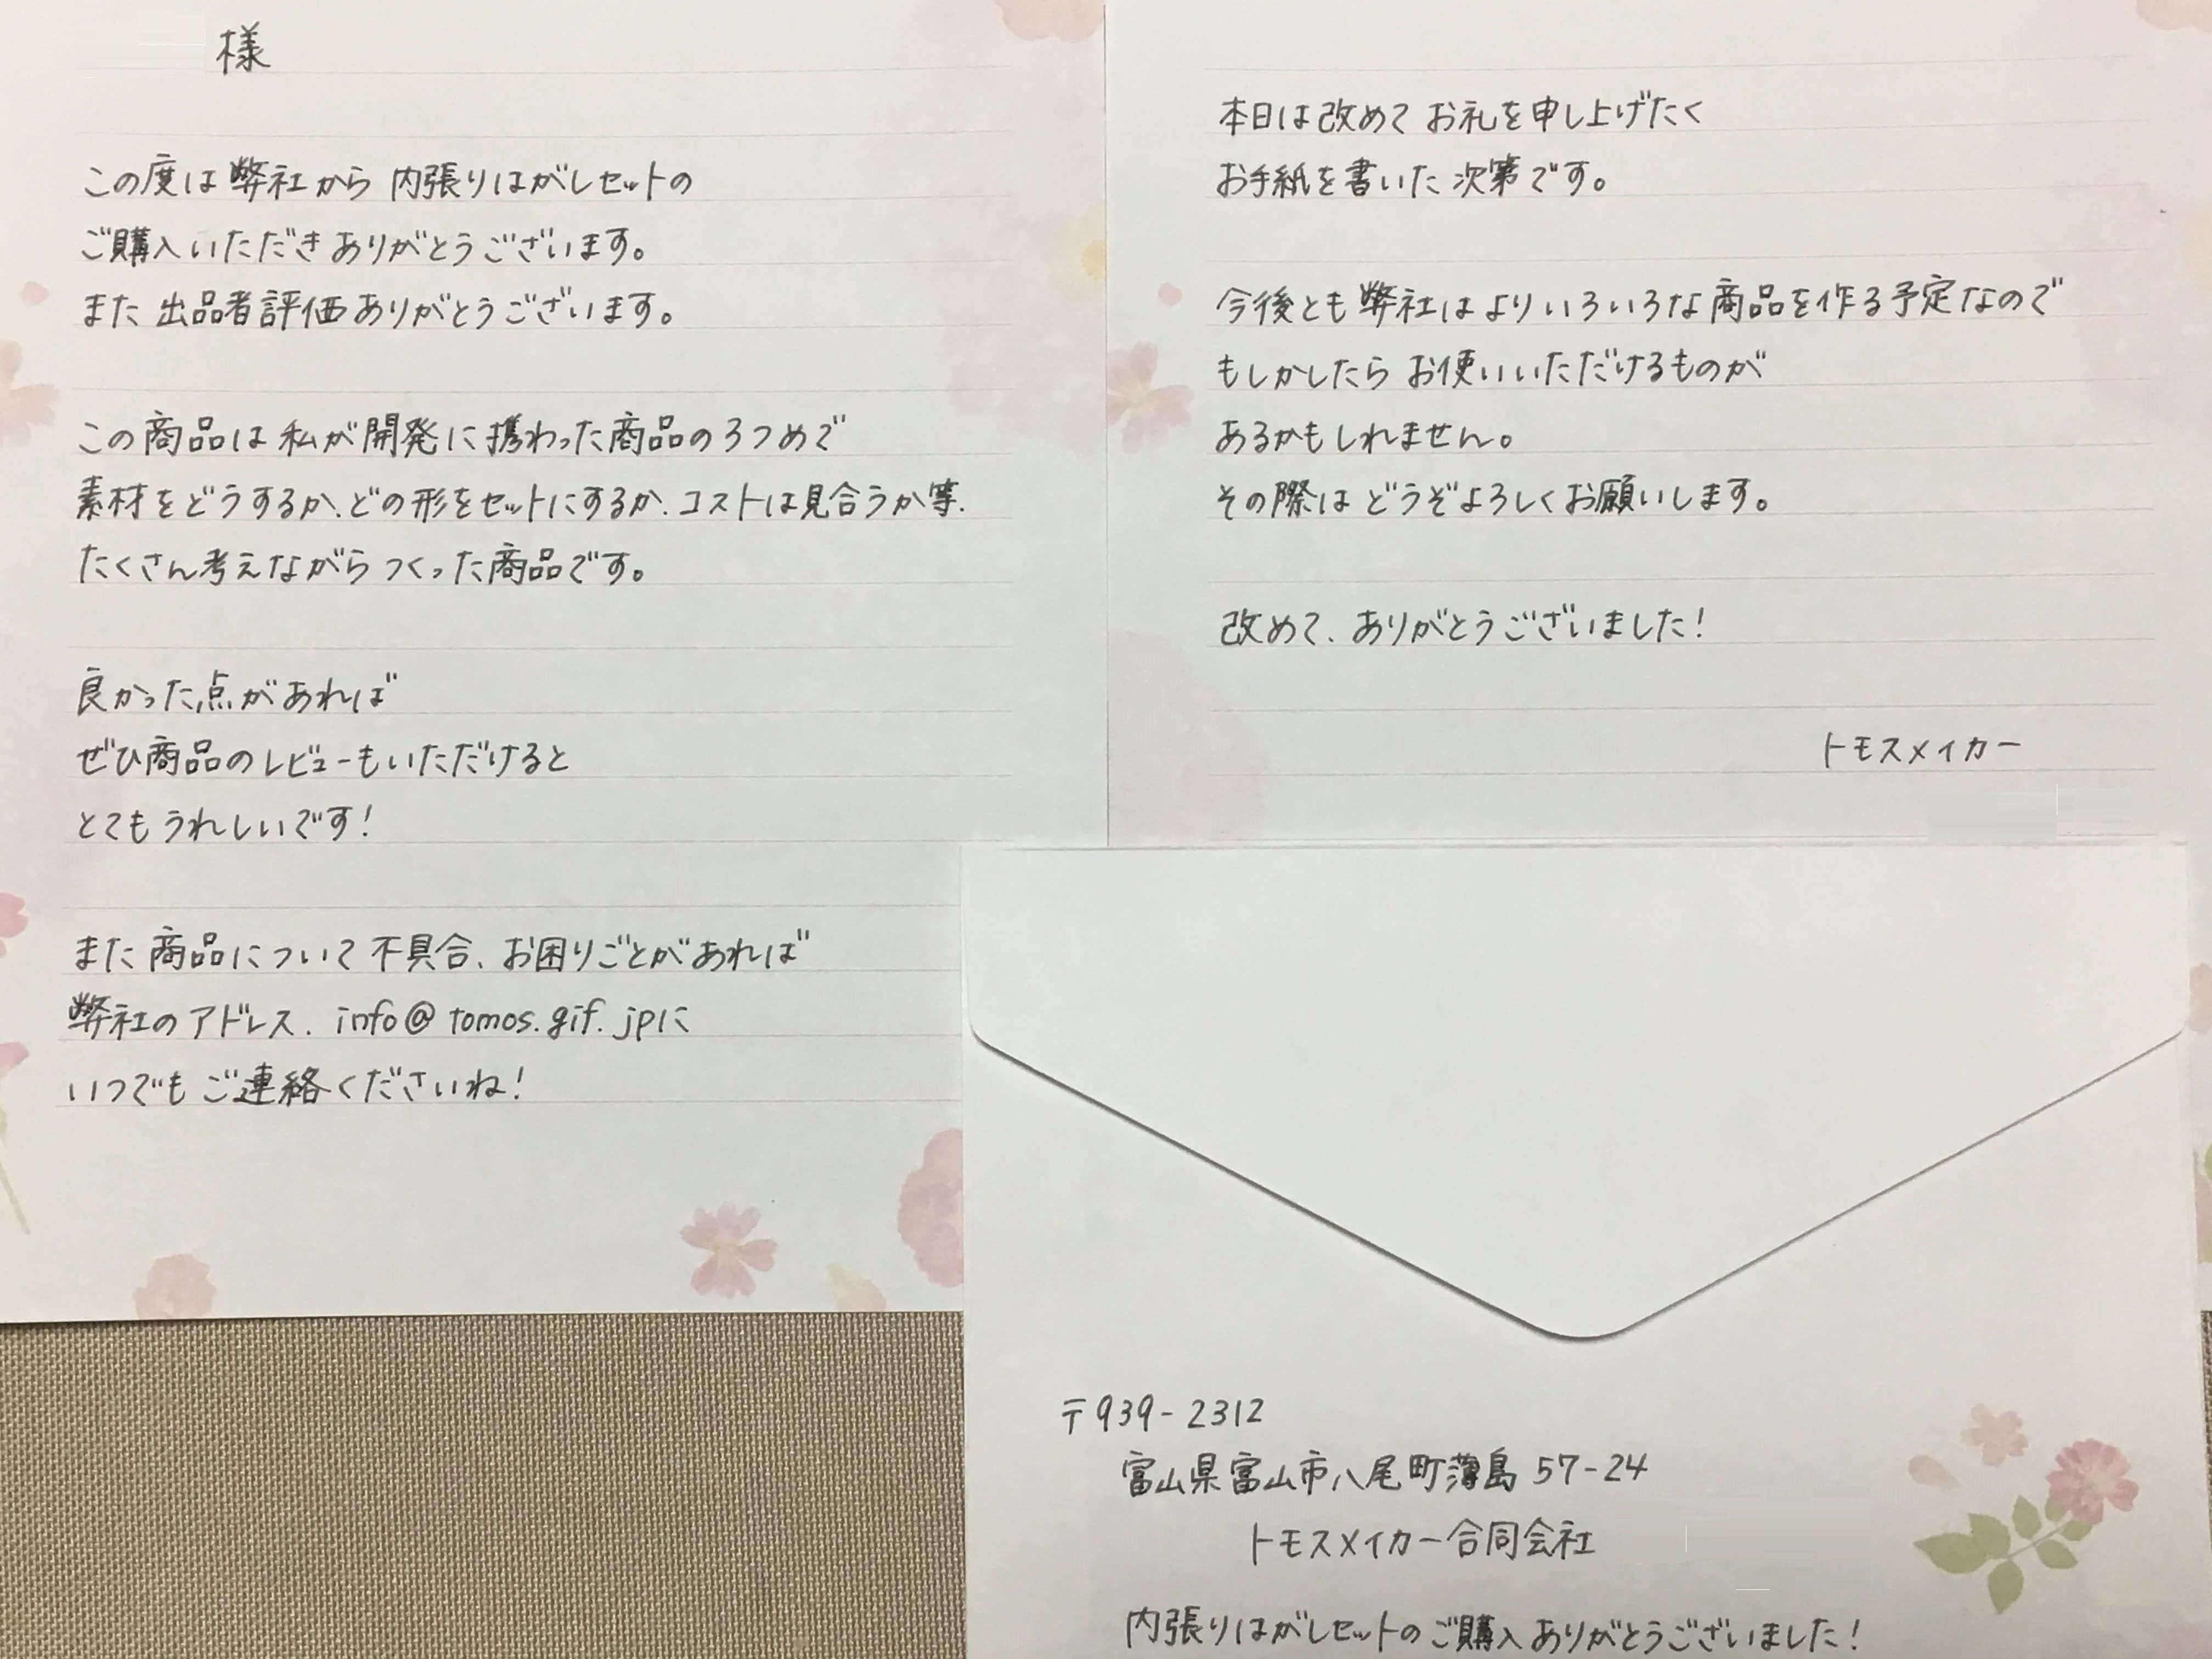 様
この度は弊社から内張りはがしセットの
ご購入いただきありがとうございます。
また出品者評価ありがとうございます。
この商品は私が開発に携わった商品の3つめで
素材をどうするか、どの形をセットにするか、コストは見合うか等、
たくさん考えながらつくった商品です。
良かった点があれば
ぜひ商品のレビューもいただけると
とてもうれしいです!
また商品について不具合、お困りごとがあれば
弊社のアドレス、info@tomos.gif.jpに
いつでもご連絡くださいね!
本日は改めてお礼を申し上げたく
お手紙を書いた次第です。
今後とも弊社はよりいろいろな商品を作る予定なので
もしかしたらお使いいただけるものが
あるかもしれません。
その際はどうぞよろしくお願いします。
改めて、ありがとうございました!
トモスメイカー
〒939-2312
富山県富山市八尾町薄島57-24
トモスメイカー合同会社
内張りはがしセットのご購入ありがとうございました!